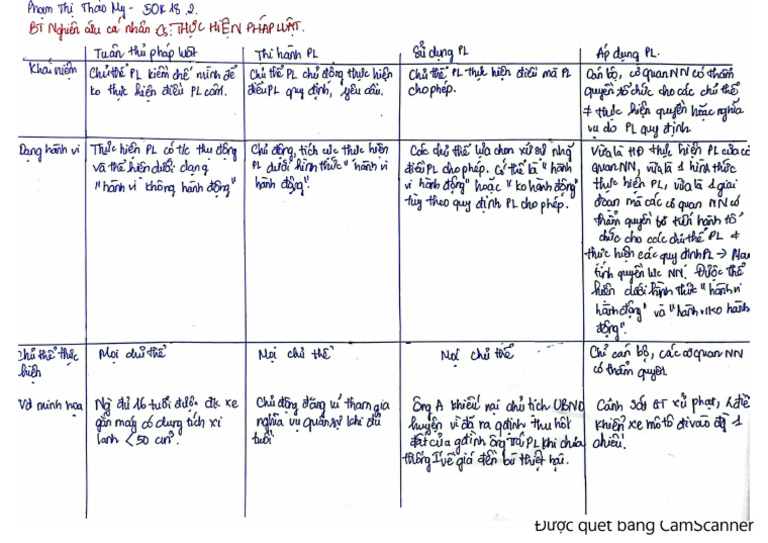 Phạm Thị Thảo My - SOK 18.2.
BT Nghiên cứu cá nhân C5: THỰC HIỆN PHÁP LUẬT.
Tuân thủ pháp luật
Thi hành PL
Sử dụng PL
Áp dụng PL.
Khái niệm
Chủ thể PL kiềm chế mình để
ko thực hiện điều PL cấm.
Chủ thể PL chủ động thực hiện
điều PL quy định, yêu cầu.
Chủ thể PL thực hiện điều mà PL
cho phép.
Cán bộ, cơ quan NN có thẩm
quyền tổ chức cho các chủ thể
≠ thực hiện quyền hoặc nghĩa
vụ do PL quy định
Dạng hành vi
Thực hiện PL có t/c thụ động
và thể hiện dưới dạng
"hành vi không hành động"
Chủ động, tích cực thực hiện
PL dưới hình thức "hành vi
hành động".
Các chủ thể lựa chọn xử sự những
điều PL cho phép. Có thể là "hành
vi hành động" hoặc "ko hành động"
tùy theo quy định PL cho phép.
Vừa là HĐ thực hiện PL của cơ
quan NN, vừa là 1 hình thức
thực hiện PL, vừa là 1 giai
đoạn mà các cơ quan NN có
thẩm quyền tiến hành tổ
chức cho các chủ thể PL ≠
thực hiện các quy định PL →
tính quyền lực NN. Được thể
hiện dưới hình thức "hành vi
hành động" và "hành vi ko hành
động".
Chủ thể thực
hiện
Mọi chủ thể
Mọi chủ thể
Mọi chủ thể
Chỉ cán bộ, các cơ quan NN
có thẩm quyền
Ví dụ minh họa
Ng đủ 16 tuổi được đk xe
gắn máy có dung tích xi
lanh < 50 cm³.
Chủ động đăng kí tham gia
nghĩa vụ quân sự khi đủ
tuổi
Ông A khiếu nại chủ tịch UBND
huyện vì đã ra qđịnh thu hồi
đất của gđình ông PL khi chưa
thống I về giá đền bù thiệt hại.
Cảnh sát GT xử phạt, điều
khiển xe mô tô đi vào đg 1
chiều.
Được quét bằng CamScanner